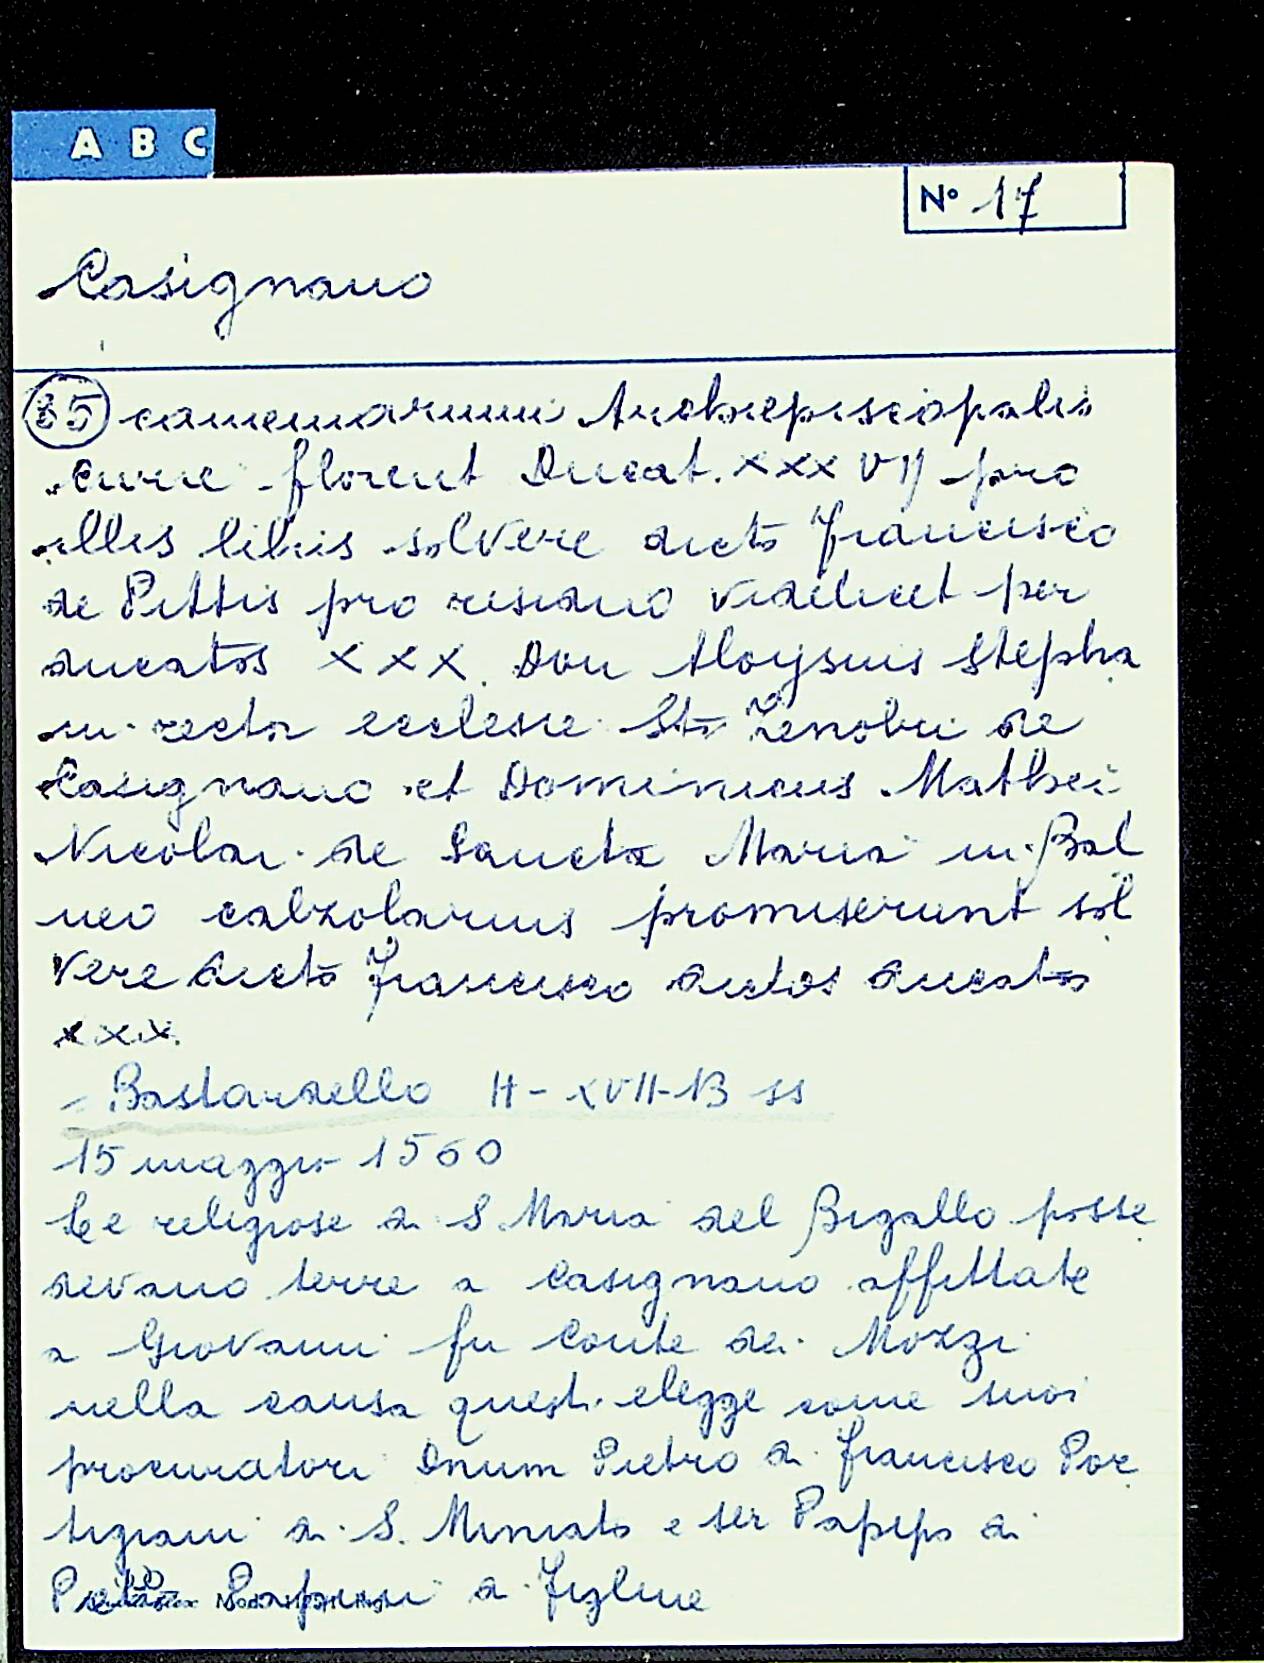 A B C
Nº 17
Casignano
35 camerarium Archiepiscopalis
Curie florent Ducat. XXXVII pro
illis libris solvere dicto Francisco
de Pittis pro residuo videlicet per
ducatos XXX. Don Aloysius Stepha
ni rector ecclesie Sti Zenobii de
Casignano et Dominicus Mathei
Nicolai de Sancta Maria in Bal
neo calzolarius promiserunt sol
vere dicto Francisco dictos ducatos
xxx.
- Bastardello H-XVII-13 ss
15 maggio 1560
Le religiose di S Maria del Bigallo posse
devano terre a Casignano affittate
a Giovanni fu Conte dei Mozzi
nella causa questi elegge come suoi
procuratori Dnum Pietro di Francesco Por
tigiani di S. Miniato e ser Papipo di
Pietro di Figline